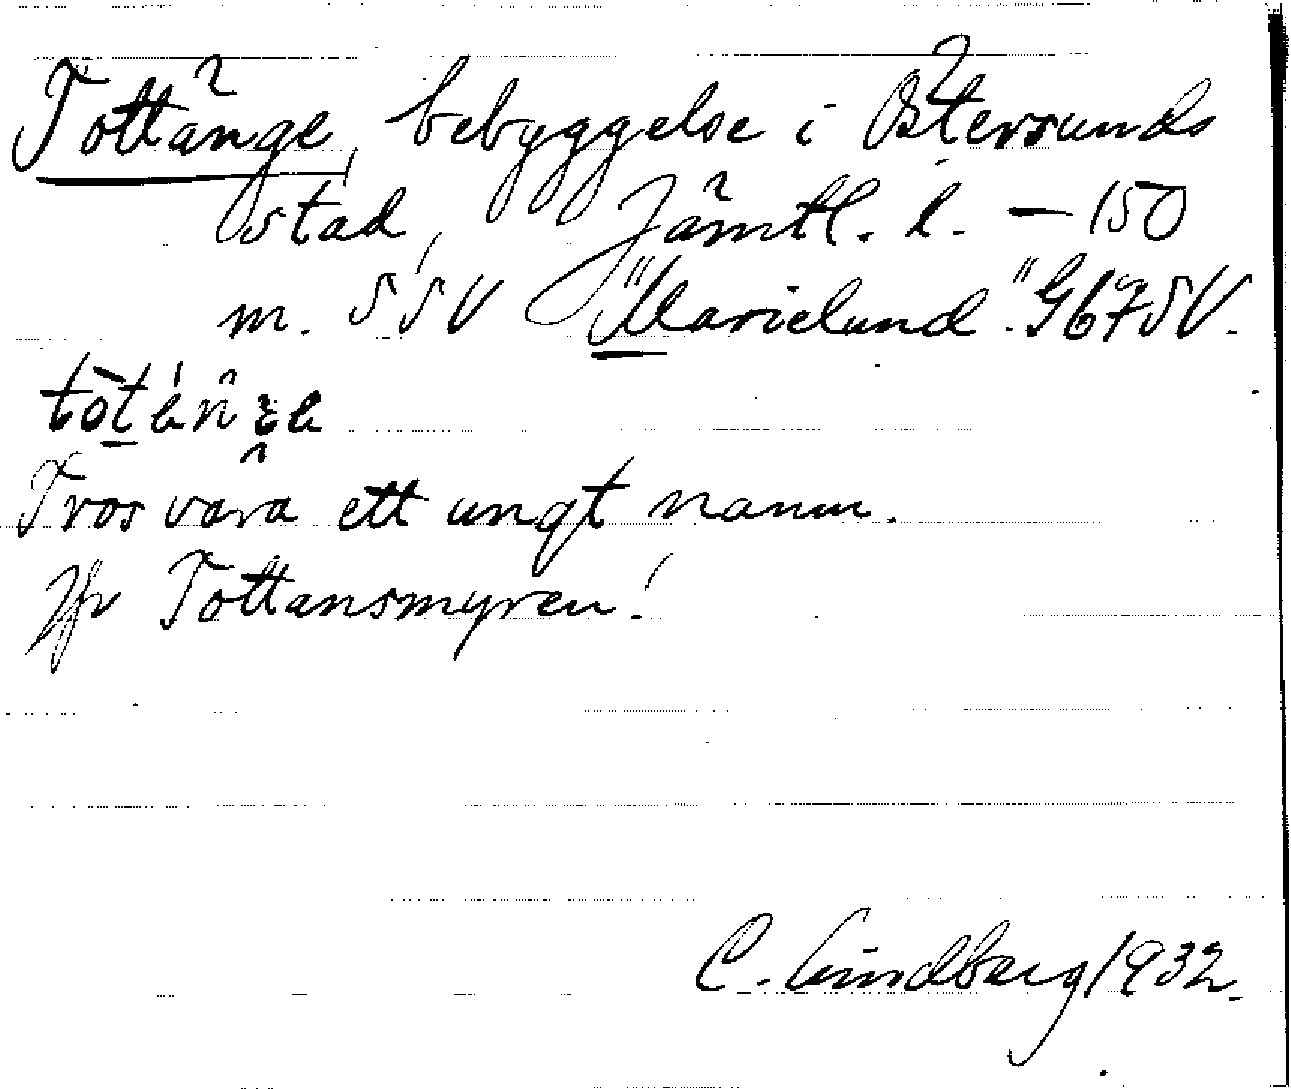 Tottänge, bebyggelse i Östersunds
stad, Jämtl. l. — 150
m. SSV "Marielund". G67SV.
Tros vara ett ungt namn.
Jfr Tottansmyren!
C. Lindberg 1932.